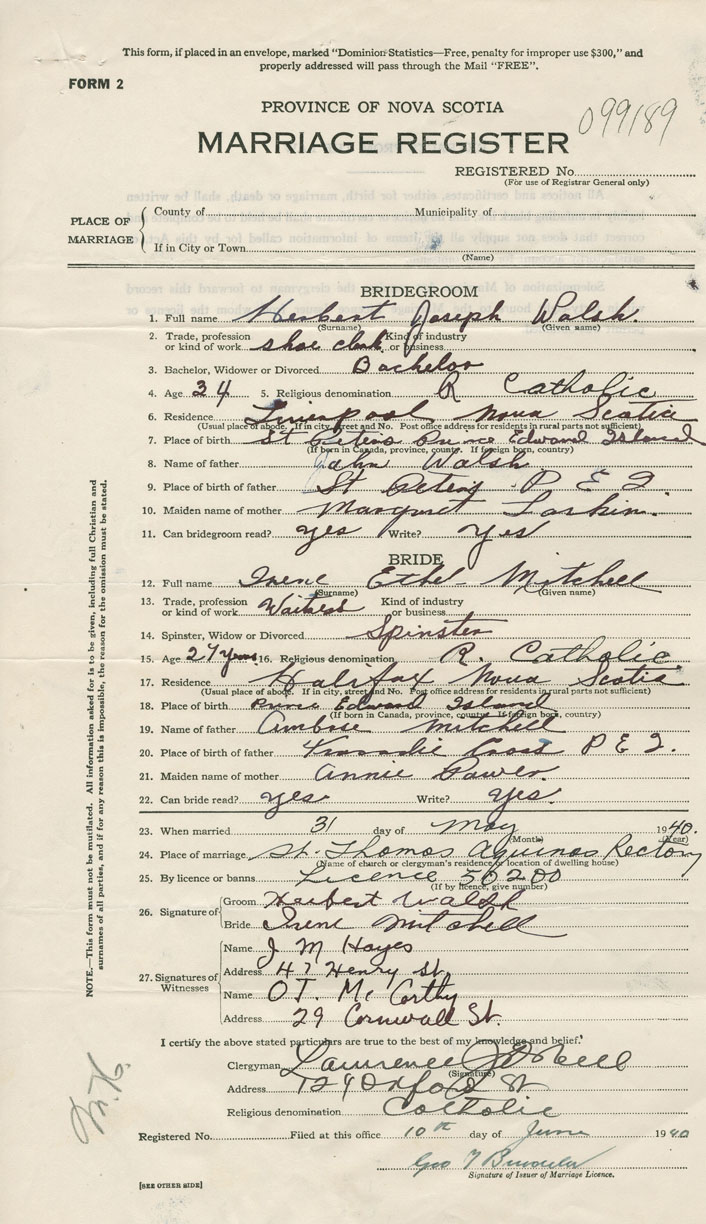 This form, if placed in an envelope, marked "Dominion Statistics—Free, penalty for improper use $300," and
properly addressed will pass through the Mail "FREE".
FORM 2
PROVINCE OF NOVA SCOTIA
099189
MARRIAGE REGISTER
REGISTERED No.
(For use of Registrar General only)
PLACE OF MARRIAGE
County of Municipality of
If in City or Town
(Name)
BRIDEGROOM
1. Full name Herbert Joseph Walsh.
(Surname) (Given name)
2. Trade, profession or kind of work shoe clerk Kind of industry or business
3. Bachelor, Widower or Divorced Bachelor
4. Age 34 5. Religious denomination R Catholic
6. Residence Liverpool Nova Scotia
(Usual place of abode. If in city, street and No. Post office address for residents in rural parts not sufficient)
7. Place of birth St Peters Prince Edward Island
(If born in Canada, province, county. If foreign born, country)
8. Name of father John Walsh
9. Place of birth of father St Peters P E I
10. Maiden name of mother Margaret Larkin.
11. Can bridegroom read? yes Write? yes
BRIDE
12. Full name Irene Ethel Mitchell
(Surname) (Given name)
13. Trade, profession or kind of work Waitress Kind of industry or business
14. Spinster, Widow or Divorced Spinster
15. Age 27 years 16. Religious denomination R. Catholic.
17. Residence Halifax Nova Scotia
(Usual place of abode. If in city, street and No. Post office address for residents in rural parts not sufficient)
18. Place of birth Prince Edward Island
(If born in Canada, province, county. If foreign born, country)
19. Name of father Ambrose Mitchell
20. Place of birth of father Cross P E I.
21. Maiden name of mother Annie Power.
22. Can bride read? yes Write? yes.
23. When married 31 day of May 1940.
(Month) (Year)
24. Place of marriage St. Thomas Aquinas Rectory
(Name of church or clergyman's residence or location of dwelling house)
25. By licence or banns Licence 50200
(If by licence, give number)
26. Signature of
Groom Herbert Walsh
Bride Irene Mitchell
27. Signatures of Witnesses
Name J M Hayes
Address 47 Henry St.
Name O T. McCarthy
Address 29 Cornwall St.
I certify the above stated particulars are true to the best of my knowledge and belief.
Clergyman Lawrence
(Signature)
Address 129 Oxford St
Religious denomination Catholic
Registered No. Filed at this office 10th day of June 1940
Geo
Signature of Issuer of Marriage Licence.
[SEE OTHER SIDE]
NOTE.—This form must not be mutilated. All information asked for is to be given, including full Christian and
surnames of all parties, and if for any reason this is impossible, the reason for the omission must be stated.